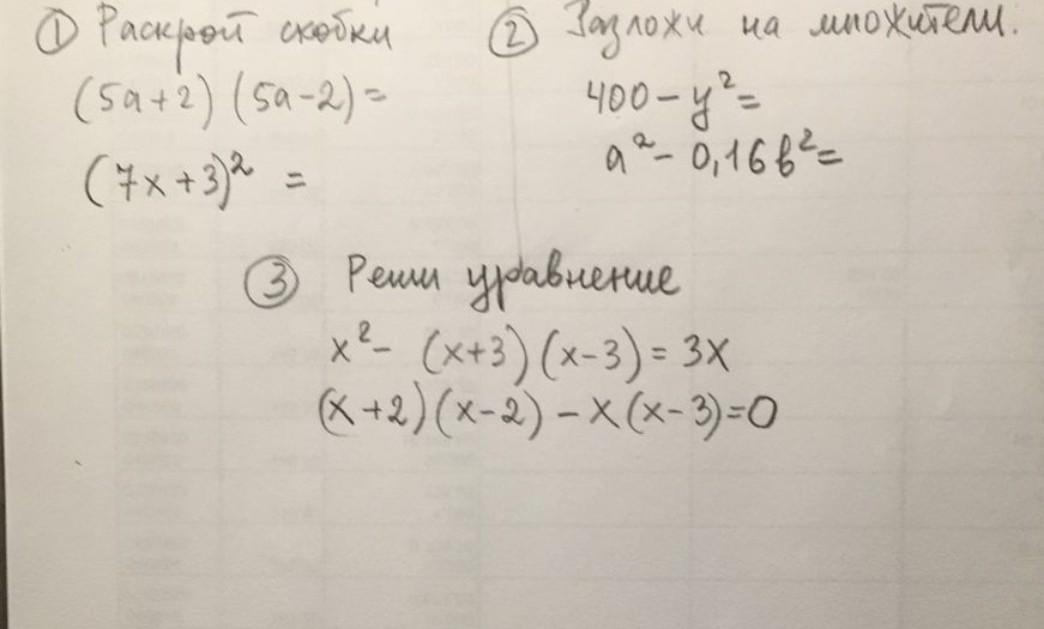 ① Раскрой скобки
(5a+2) (5a-2)=
(7x+3)² =
② Разложи на множители.
400-y²=
a²- 0,16b²=
③ Реши уравнение
x²- (x+3)(x-3)=3x
(x+2)(x-2)-x(x-3)=0